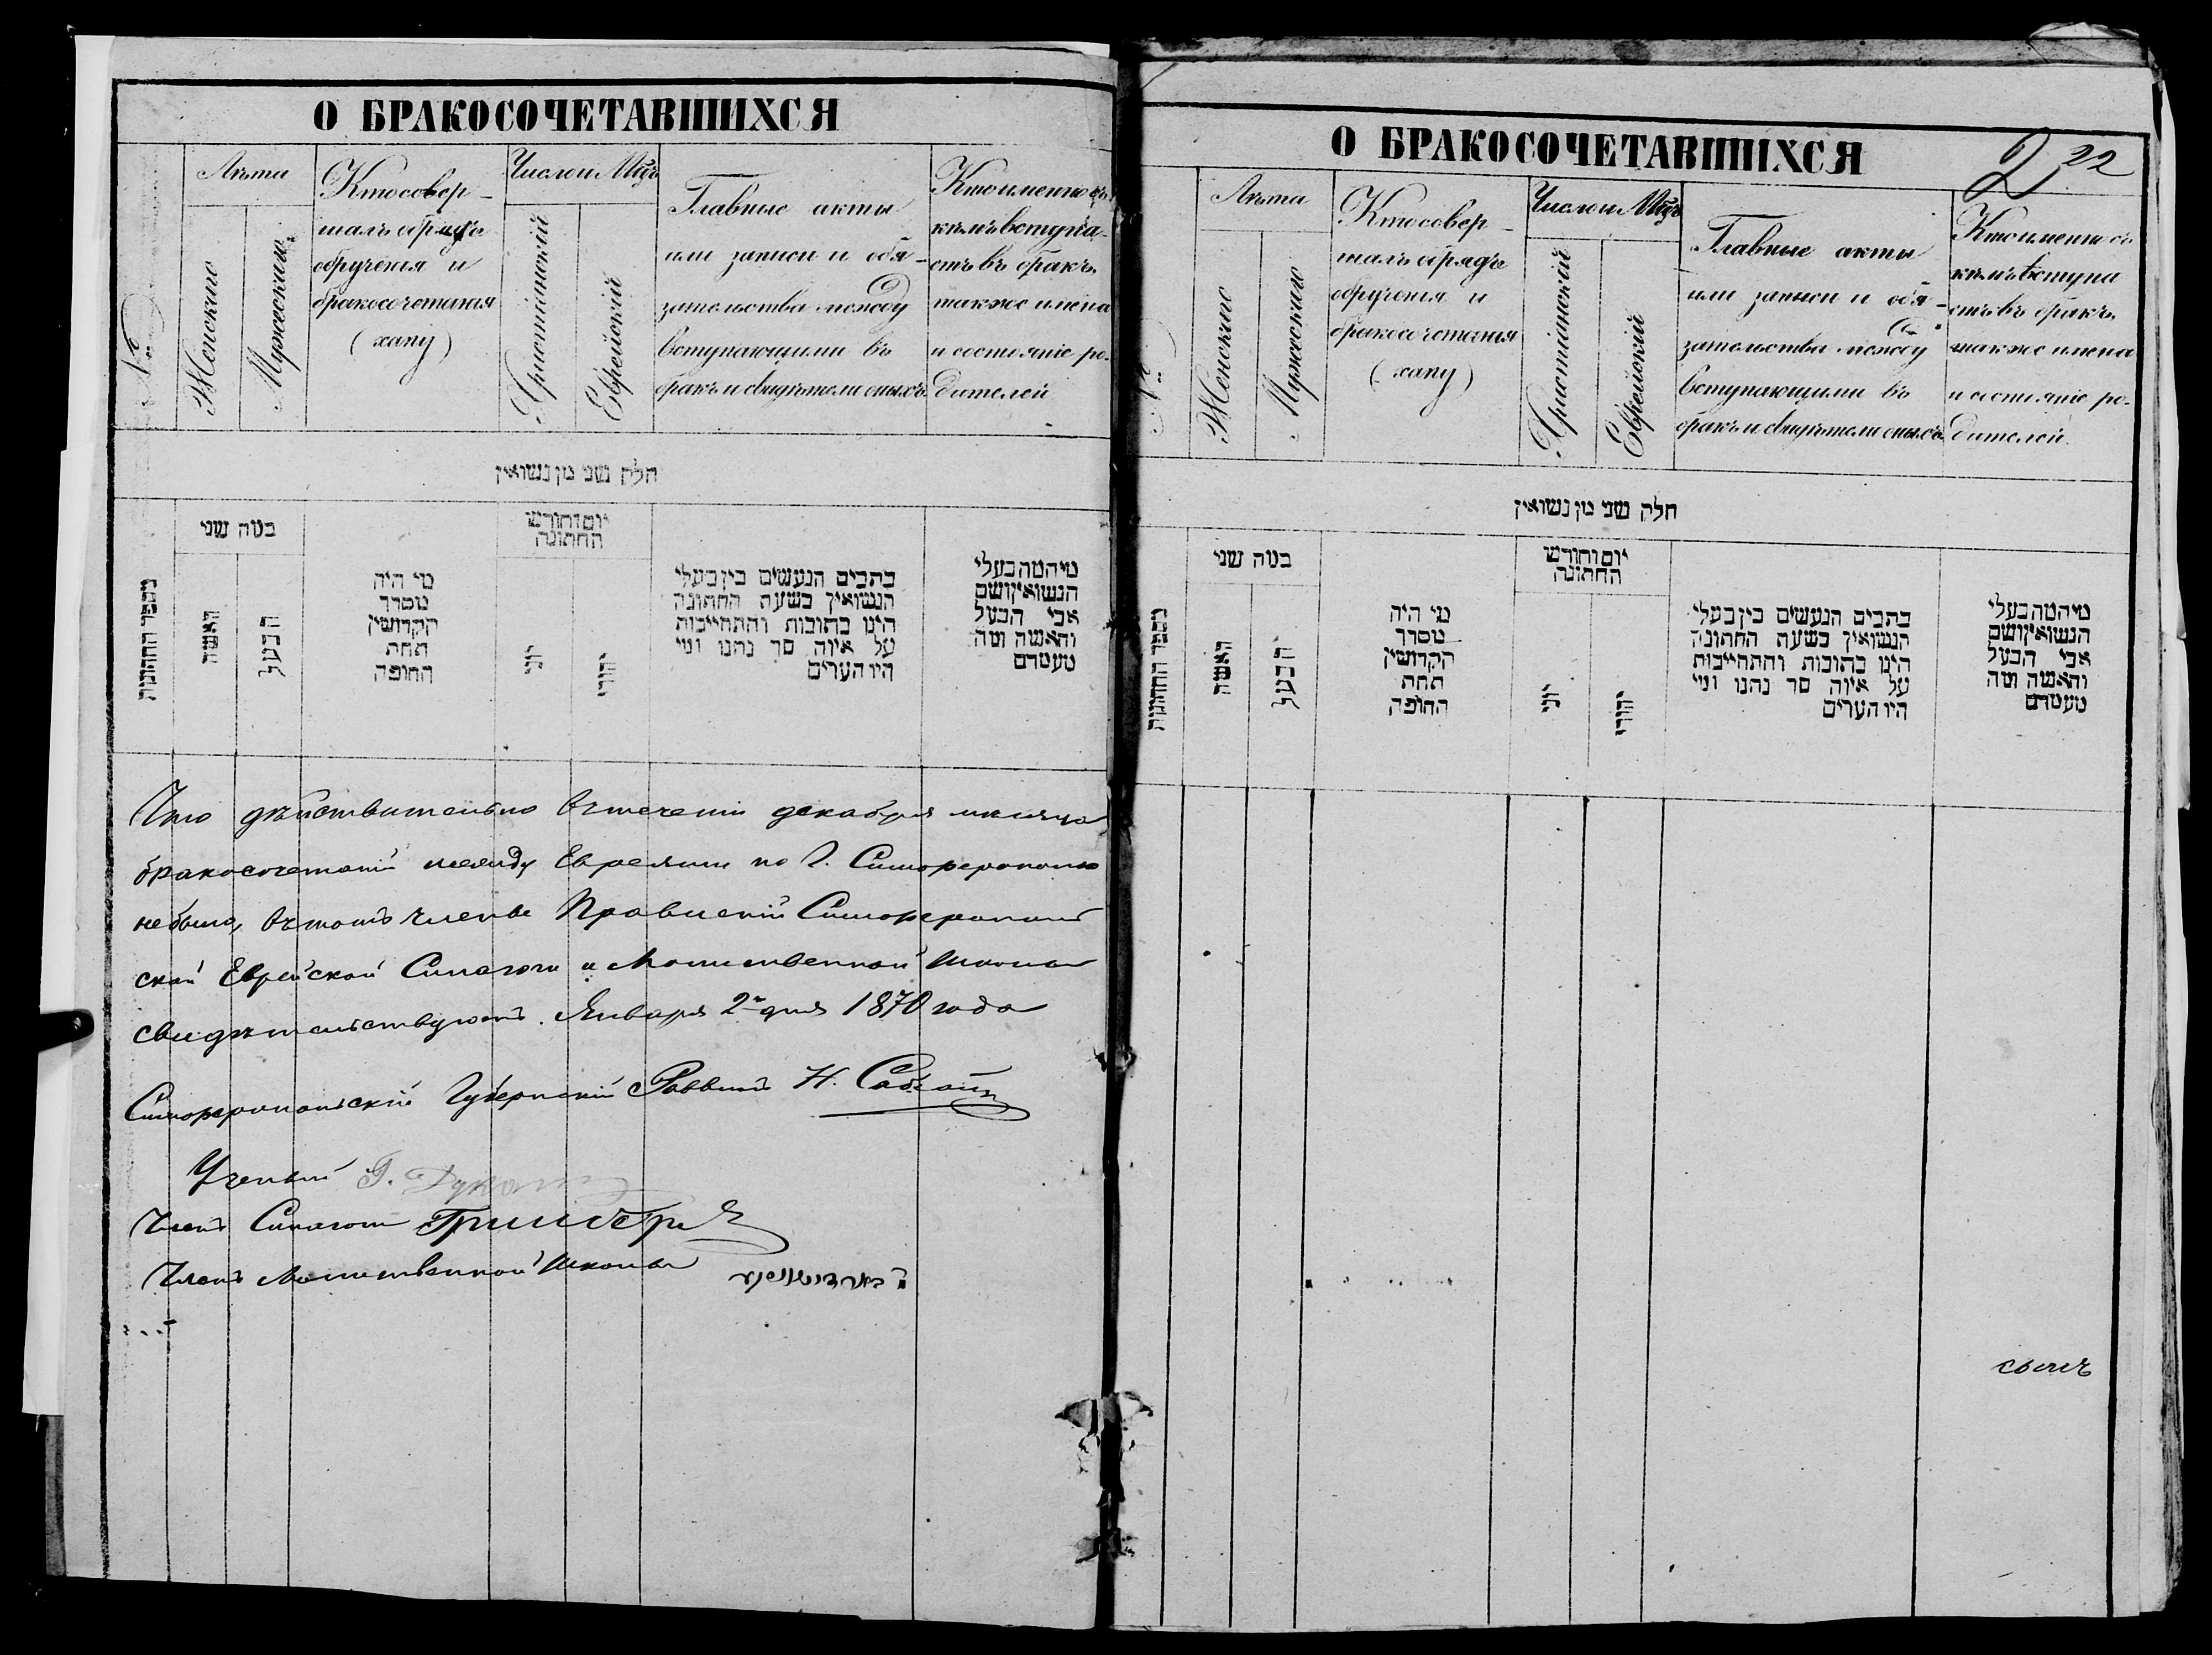 О БРАКОСОЧЕТАВШИХСЯ
№
Лѣта
Женскаго
Мужескаго
Кто совер-
шалъ обрядъ
обрученія и
бракосочетанія
(хапу)
Число и Мцъ
Христіанскій
Еврейскій
Главные акты
или записи и обя-
зательства между
вступающими въ
бракъ и свидѣтели оныхъ
Кто именно съ
кѣмъ вступа-
етъ въ бракъ,
также имена
и состояніе ро-
дителей
חלק שני מן נשואין
מספר החתונות
כמה שני
האשה
הבעל
מי היה
מסדר
הקדושין
תחת
החופה
יום וחודש
החתונה
יוני
יהודי
כתבים הנעשים בין בעלי
הנשואין בשעת החתונה
היינו כתובות והתחייבות
על איזה סך נתנו ומי
היו העדים
מי המה בעלי
הנשואין ושם
אבי הבעל
והאשה ומה
מעמדם
Что дѣйствительно въ теченіи декабря мѣсяца
бракосочетаній между Евреями по Г. Симферополю
не было, въ томъ члены Правленій Симферополь
ской Еврейской Синагоги и Молитвенной Школы
свидѣтельствуютъ. Января 2го дня 1870 года
Симферопольскій Губернскій Раввинъ Н.
Ученый Г.
Членъ Синагоги Гринберг
Членъ Молитвенной Школы
О БРАКОСОЧЕТАВШИХСЯ
22
№
Лѣта
Женскаго
Мужескаго
Кто совер-
шалъ обрядъ
обрученія и
бракосочетанія
(хапу)
Число и Мцъ
Христіанскій
Еврейскій
Главные акты
или записи и обя-
зательства между
вступающими въ
бракъ и свидѣтели оныхъ
Кто именно съ
кѣмъ вступа
етъ въ бракъ,
также имена
и состояніе ро-
дителей
חלק שני מן נשואין
מספר החתונות
כמה שני
האשה
הבעל
מי היה
מסדר
הקדושין
תחת
החופה
יום וחודש
החתונה
יוני
יהודי
כתבים הנעשים בין בעלי
הנשואין בשעת החתונה
היינו כתובות והתחייבות
על איזה סך נתנו ומי
היו העדים
מי המה בעלי
הנשואין ושם
אבי הבעל
והאשה ומה
מעמדם